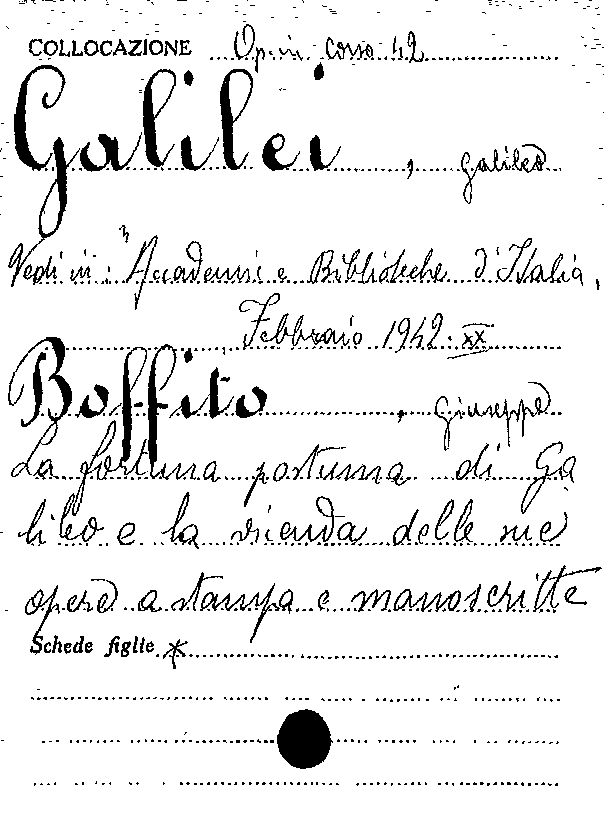 COLLOCAZIONE Op. in corso 42
Galilei, Galileo
Vedi in: "Accademie e Biblioteche d'Italia,
Febbraio 1942.XX
Boffito, Giuseppe
La fortuna postuma di Ga
lileo e la vicenda delle sue
opere a stampa e manoscritte
Schede figlie *